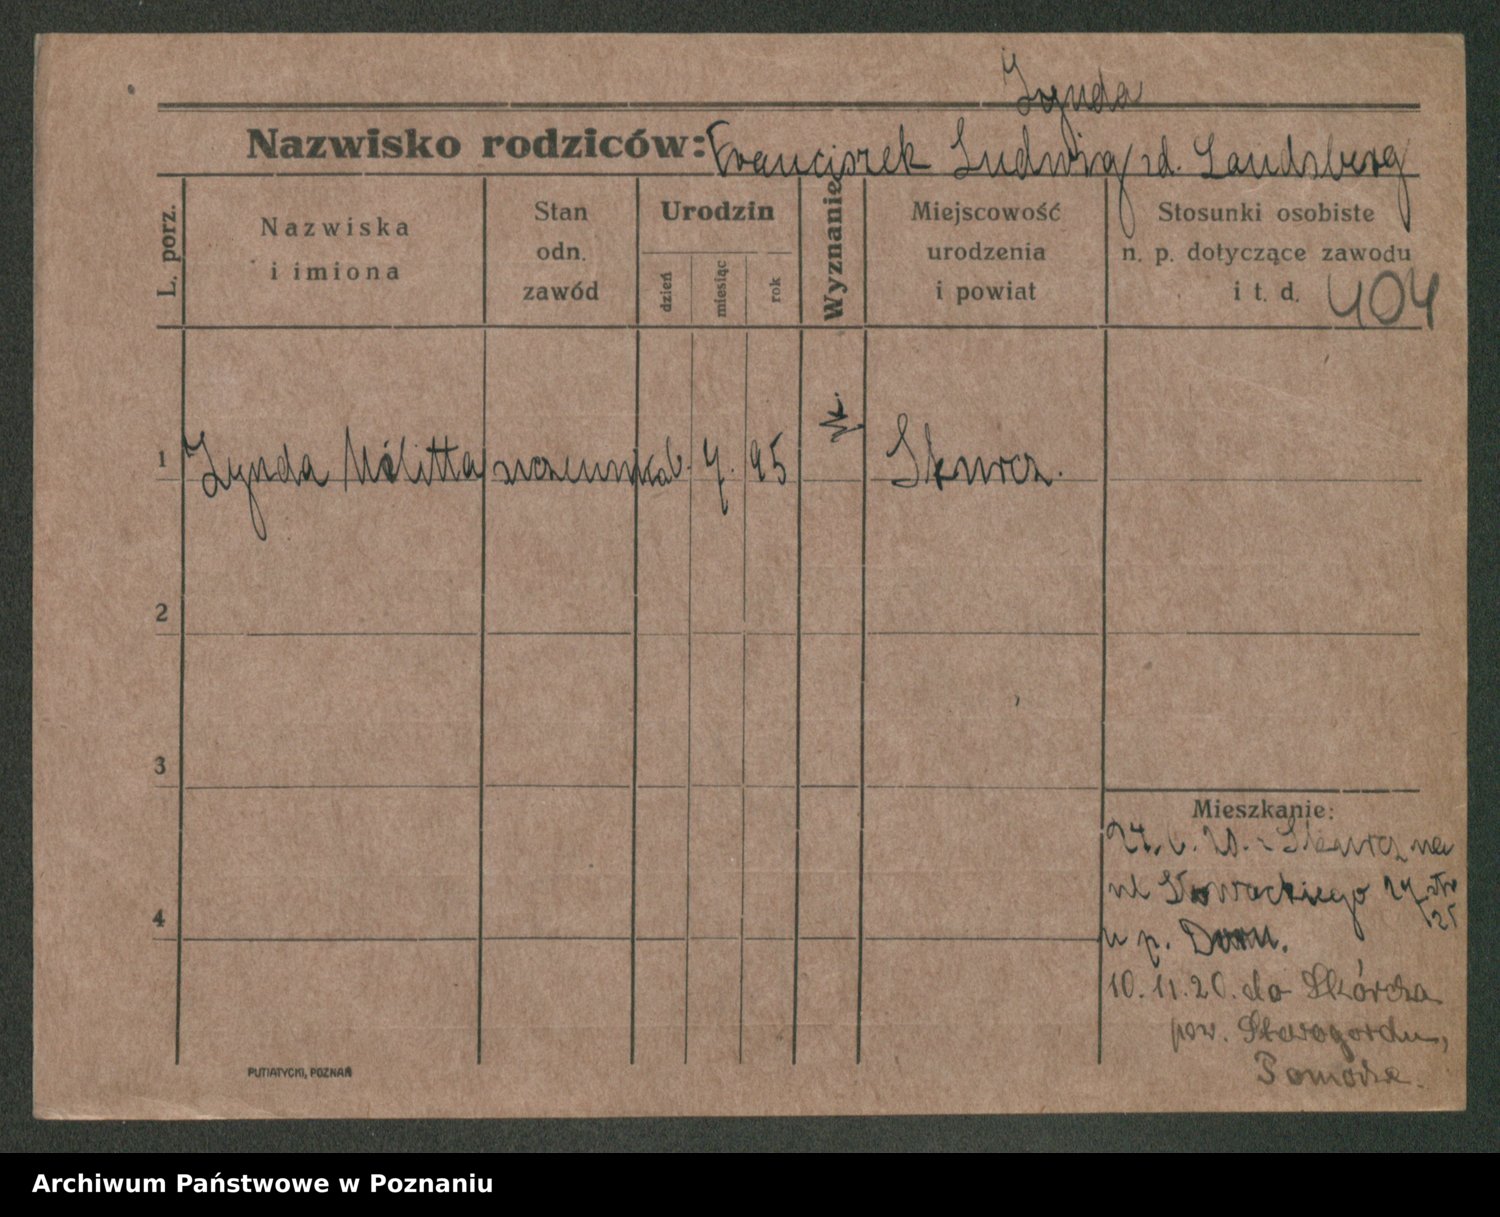 Zynda
Nazwisko rodziców: Franciszek Ludwig zd. Landsberg
L. porz.
Nazwiska
i imiona
Stan
odn.
zawód
Urodzin
dzień
miesiąc
rok
Wyznanie
Miejscowość
urodzenia
i powiat
Stosunki osobiste
n. p. dotyczące zawodu
i t. d. 404
1 Zynda Melitta uczennica 6. 7. 95 Skurcz.
2
3
4
Mieszkanie:
24. 6. 20. Skurcz na
ul Słowackiego
u p.
10. 11. 20. do Skórcza
pow. Starogardu,
Pomorze.
PUTIATYCKI, POZNAŃ
Archiwum Państwowe w Poznaniu